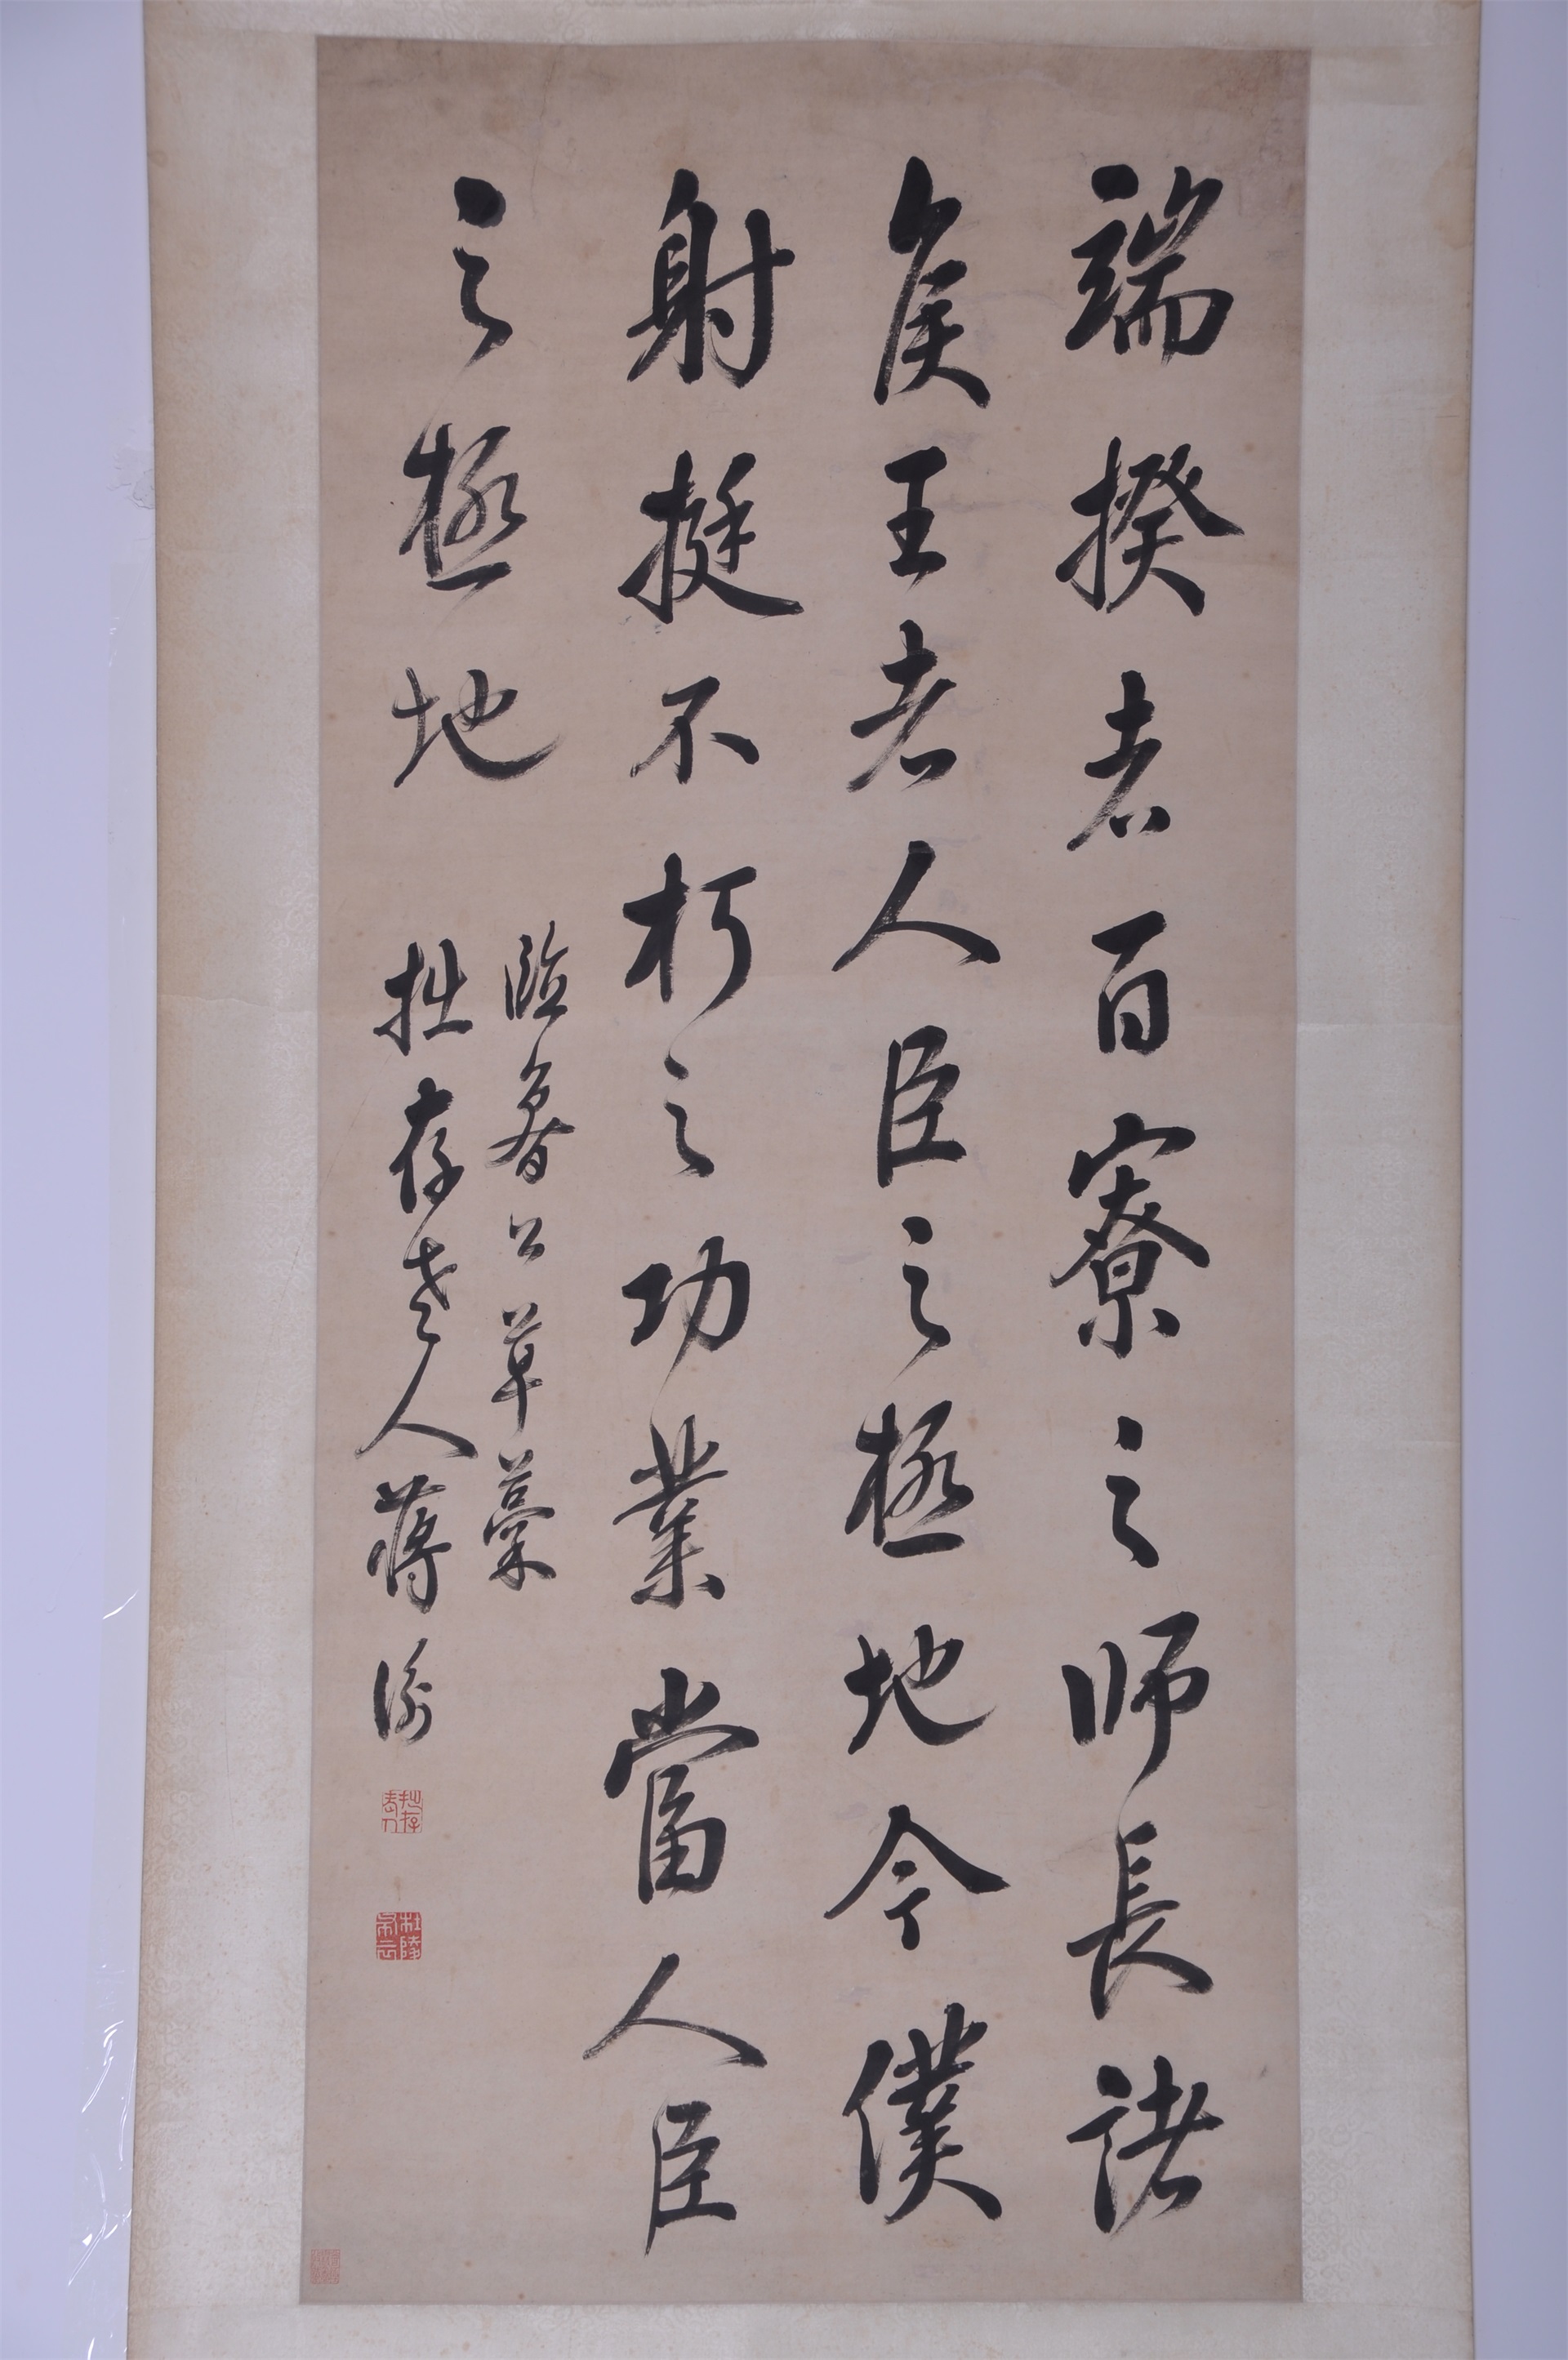 端揆者百寮之師長諸
侯王者人臣之極地今僕
射挺不朽之功業當人臣
之極地
臨魯公草藁
拙存老人蔣衡
拙存老人
杜陵